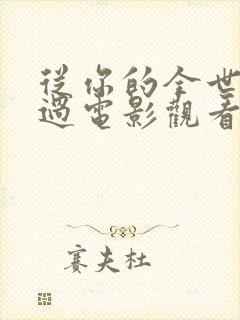 從你的全世
過電影觀看
賽夫杜